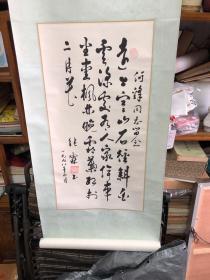 何鋒同志留念
遠上寒山石徑斜白
雲深處有人家停車
坐愛楓林晚霜葉紅於
二月花
一九九八年